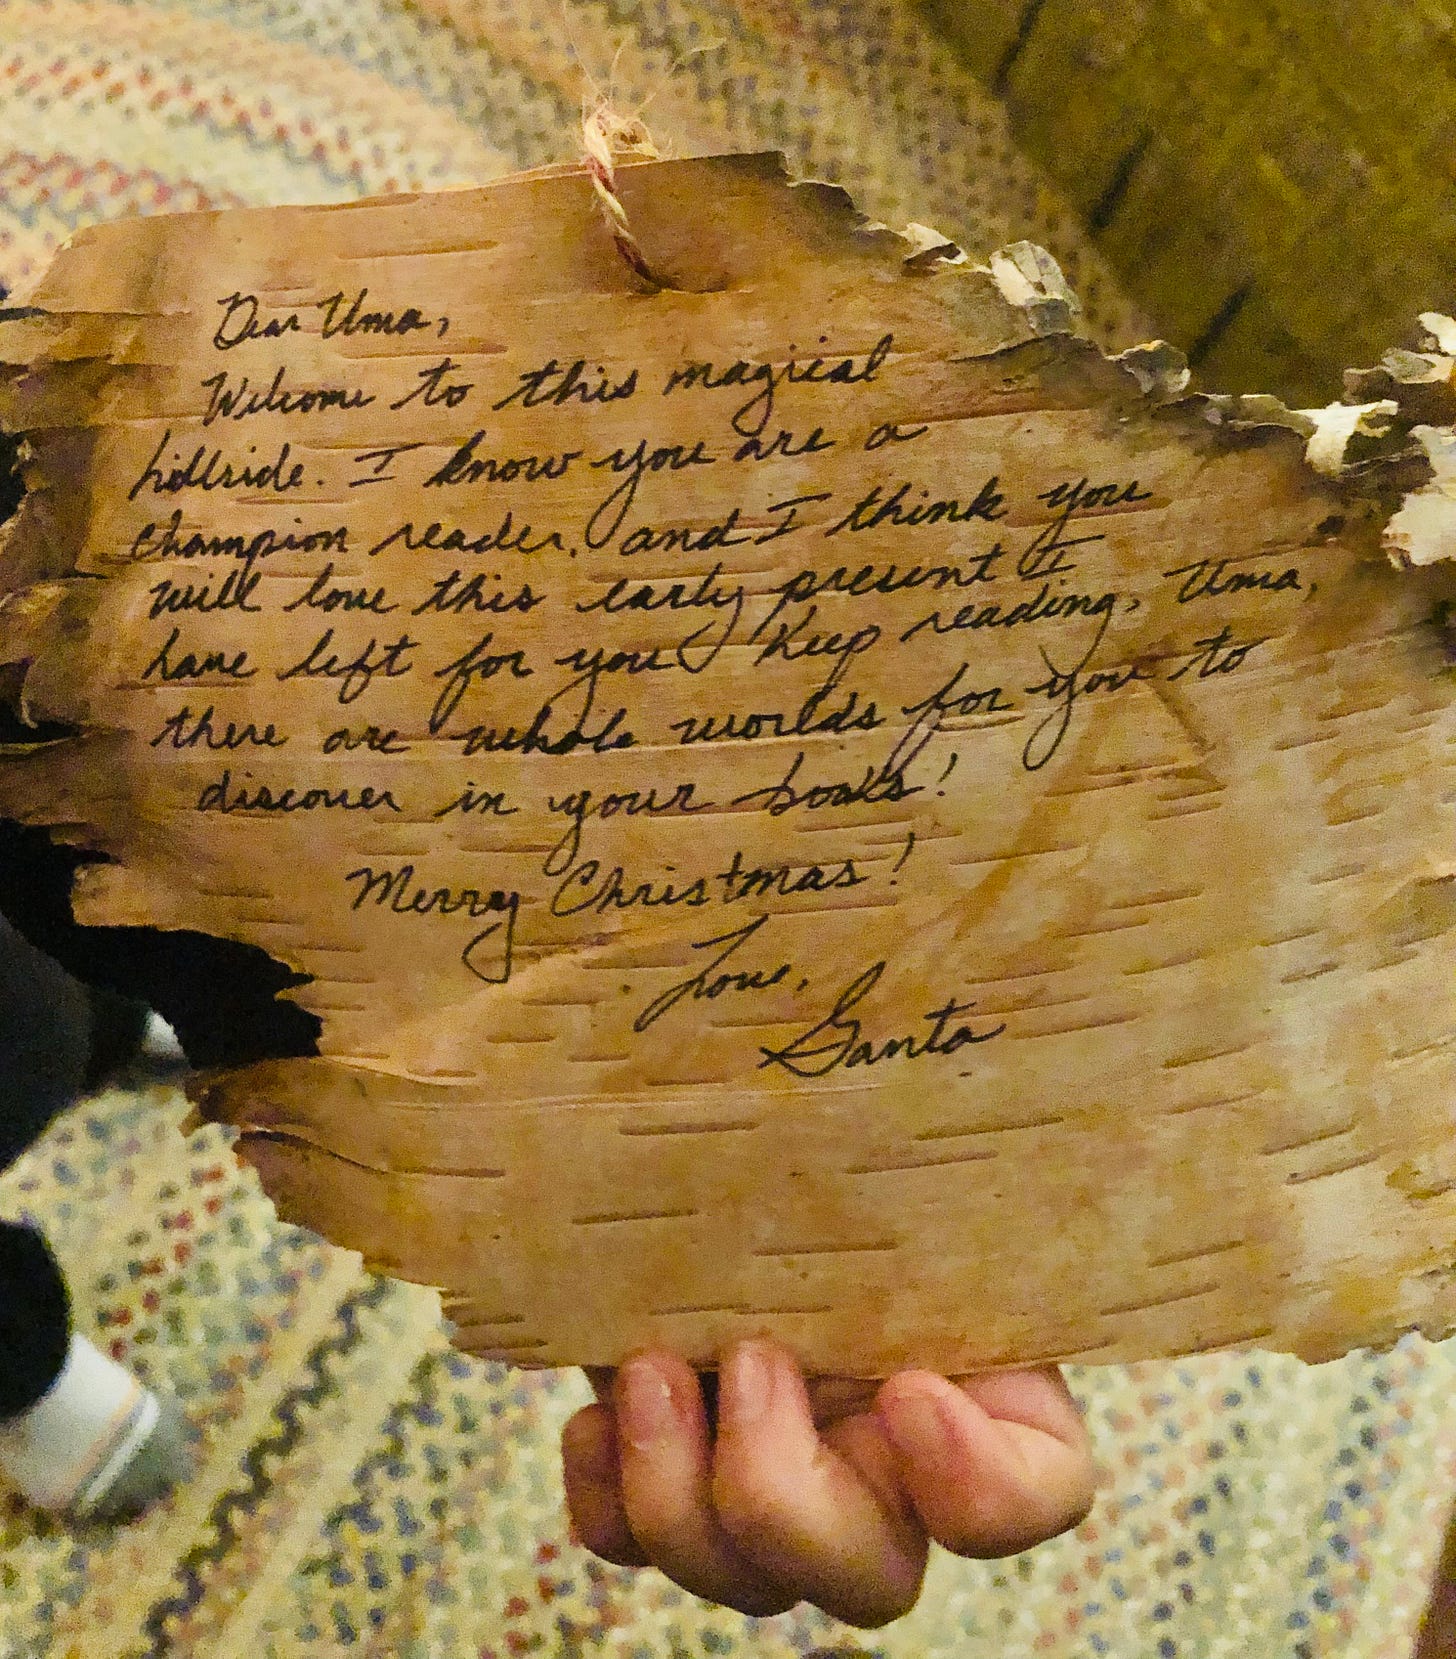 Dear Uma,
Welcome to this magical
hillside. I know you are a
champion reader, and I think you
will love this early present I
have left for you. Keep reading, Uma,
there are whole worlds for you to
discover in your books!
Merry Christmas!
Love,
Santa